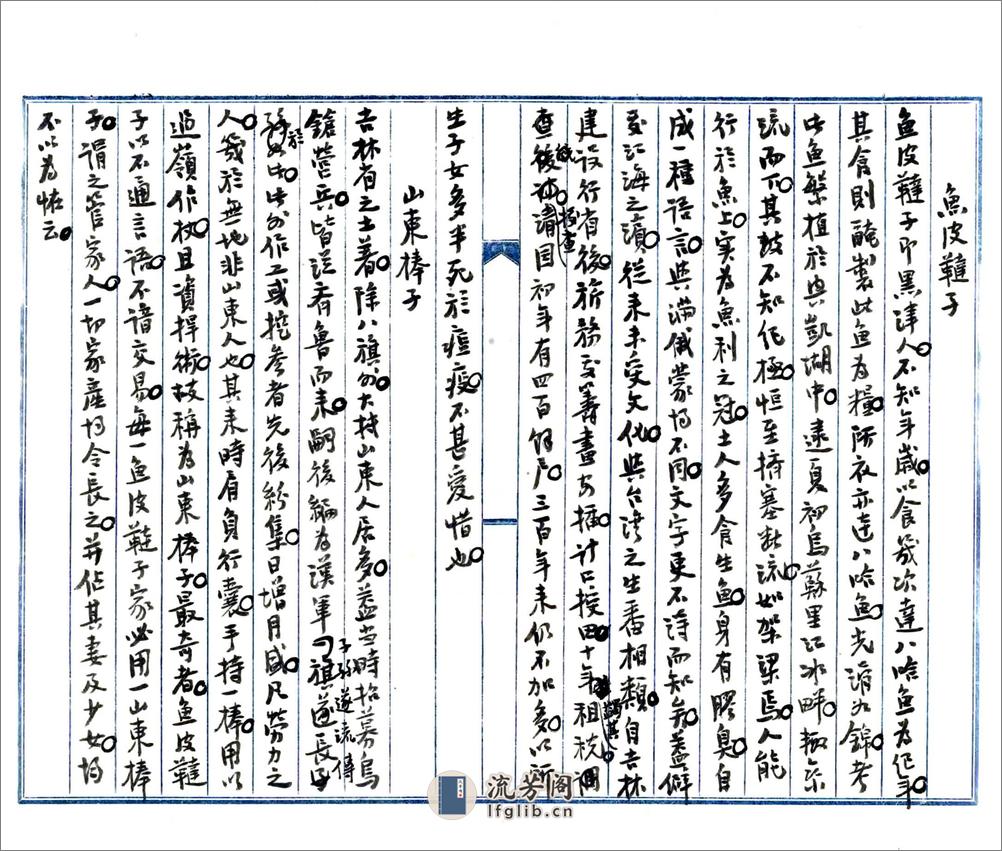 魚皮韃子
魚皮韃子即黑津人。不知年歲。以食幾次達八哈魚為紀年。
其食則醃製此魚為糧。所衣亦達八哈魚。光滑如錦。考
此魚繁植於興凱湖中。逮夏初烏蘇里江冰畔。輒
流而下。其鼓不知紀極。恒至擠塞斷流。如架梁焉。人能
行於魚上。实為魚利之冠。土人多食生魚。身有膠臭。自
成一種語言。與滿俄蒙均不同。文字更不待而知矣。蓋僻
處江海之濱。從来未受文化。與台湾之生番相類。自吉林
建設行有後。旂務處籌畫安插。計口授田。十年租税
查後清國初年有四百餘户。三百年来仍不加多。以所
生子女多半死於痘疫。不甚愛惜也。
山東棒子
吉林省之土著。除八旗外。大抵山東人居多。蓋当時招募烏
鎗营兵。皆從齊魯而来。嗣後編為漢軍旗。遂長子
子孫遂流傳
於此。此外作工或挖参者先後紛集。日增月盛。凡勞力之
人。幾於無地非山東人也。其来時肩負行囊。手持一棒。用以
過嶺作杖。且資捍衛。故称為山東棒子。最奇者。魚皮韃
子以不通言語。不諳交易。每一魚皮韃子家必用一山東棒
子。謂之管家人。一切家產均令長之。并佔其妻及少女。均
不以為怪云。
流芳阁
lfglib.cn